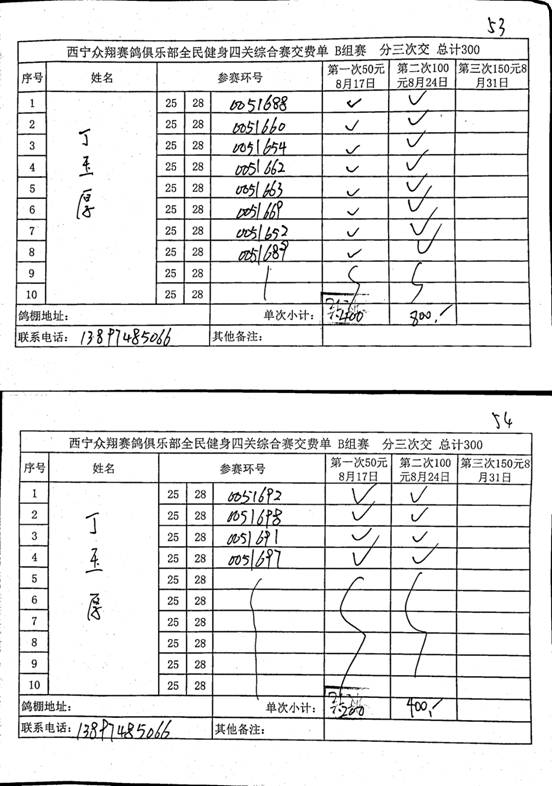 53
西宁众翔赛鸽俱乐部全民健身四关综合赛交费单 B组赛 分三次交 总计300
序号 姓名 参赛环号 第一次50元8月17日 第二次100元8月24日 第三次150元8月31日
丁玉厚
1 25 28 0051688 ✓ ✓
2 25 28 0051660 ✓ ✓
3 25 28 0051654 ✓ ✓
4 25 28 0051662 ✓ ✓
5 25 28 0051663 ✓ ✓
6 25 28 0051669 ✓ ✓
7 25 28 0051652 ✓ ✓
8 25 28 0051689 ✓ ✓
9 25 28
10 25 28
鸽棚地址: 单次小计: 400 800.-
联系电话: 13897485066 其他备注:
54
西宁众翔赛鸽俱乐部全民健身四关综合赛交费单 B组赛 分三次交 总计300
序号 姓名 参赛环号 第一次50元8月17日 第二次100元8月24日 第三次150元8月31日
丁玉厚
1 25 28 0051692 ✓ ✓
2 25 28 0051698 ✓ ✓
3 25 28 0051691 ✓ ✓
4 25 28 0051697 ✓ ✓
5 25 28
6 25 28
7 25 28
8 25 28
9 25 28
10 25 28
鸽棚地址: 单次小计: 200 400.-
联系电话: 13897485066 其他备注: